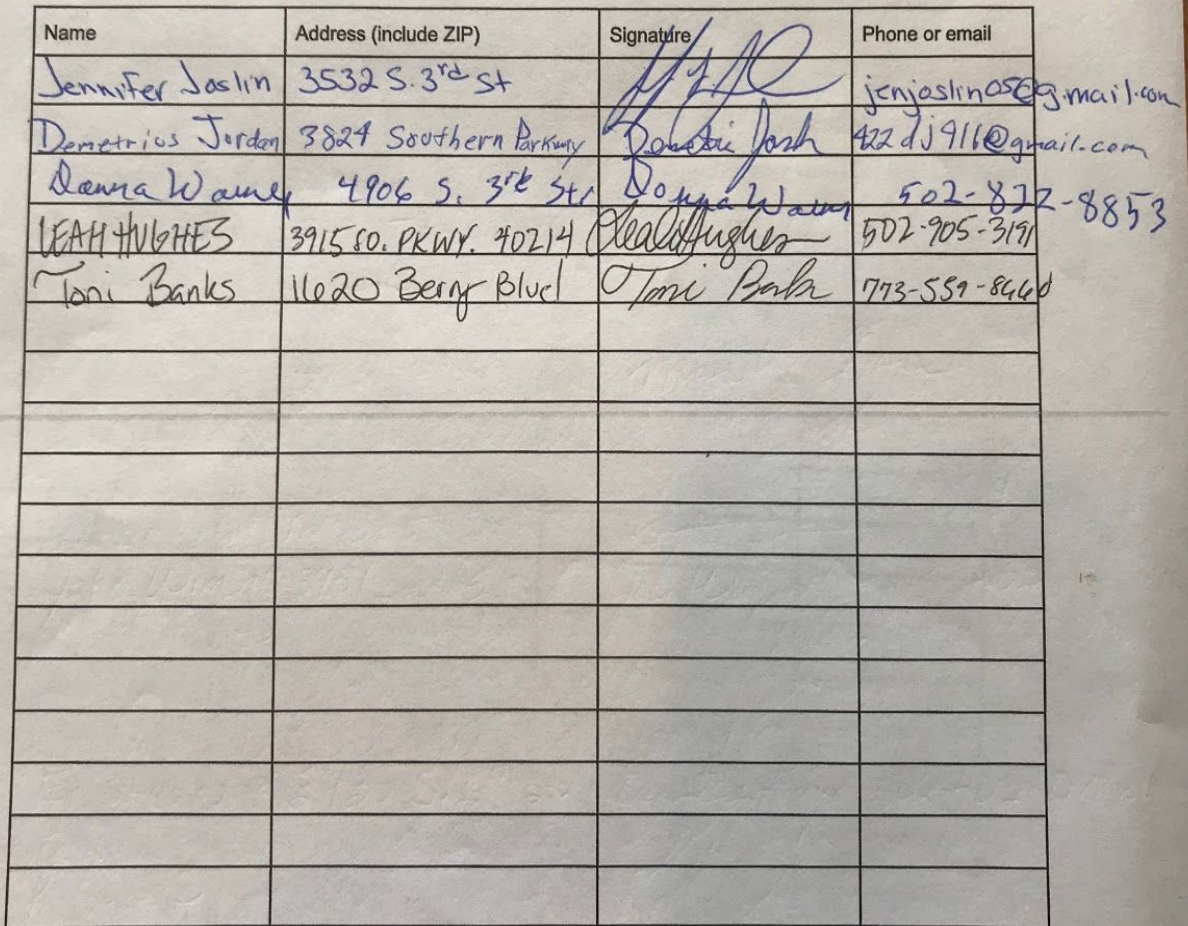 Name Address (include ZIP) Signature Phone or email
Jennifer Joslin 3532 S. 3rd St jenjoslin05@gmail.com
Demetrios Jordan 3824 Southern Parkway 422dj911@gmail.com
Donna 4906 S. 3rd Str Donna 502-822-8853
LEAH HUGHES 3915 SO. PKWY. 40214 Leah Hughes 502-905-3191
Toni Banks 1620 Berry Blvd Toni 773-559-8660